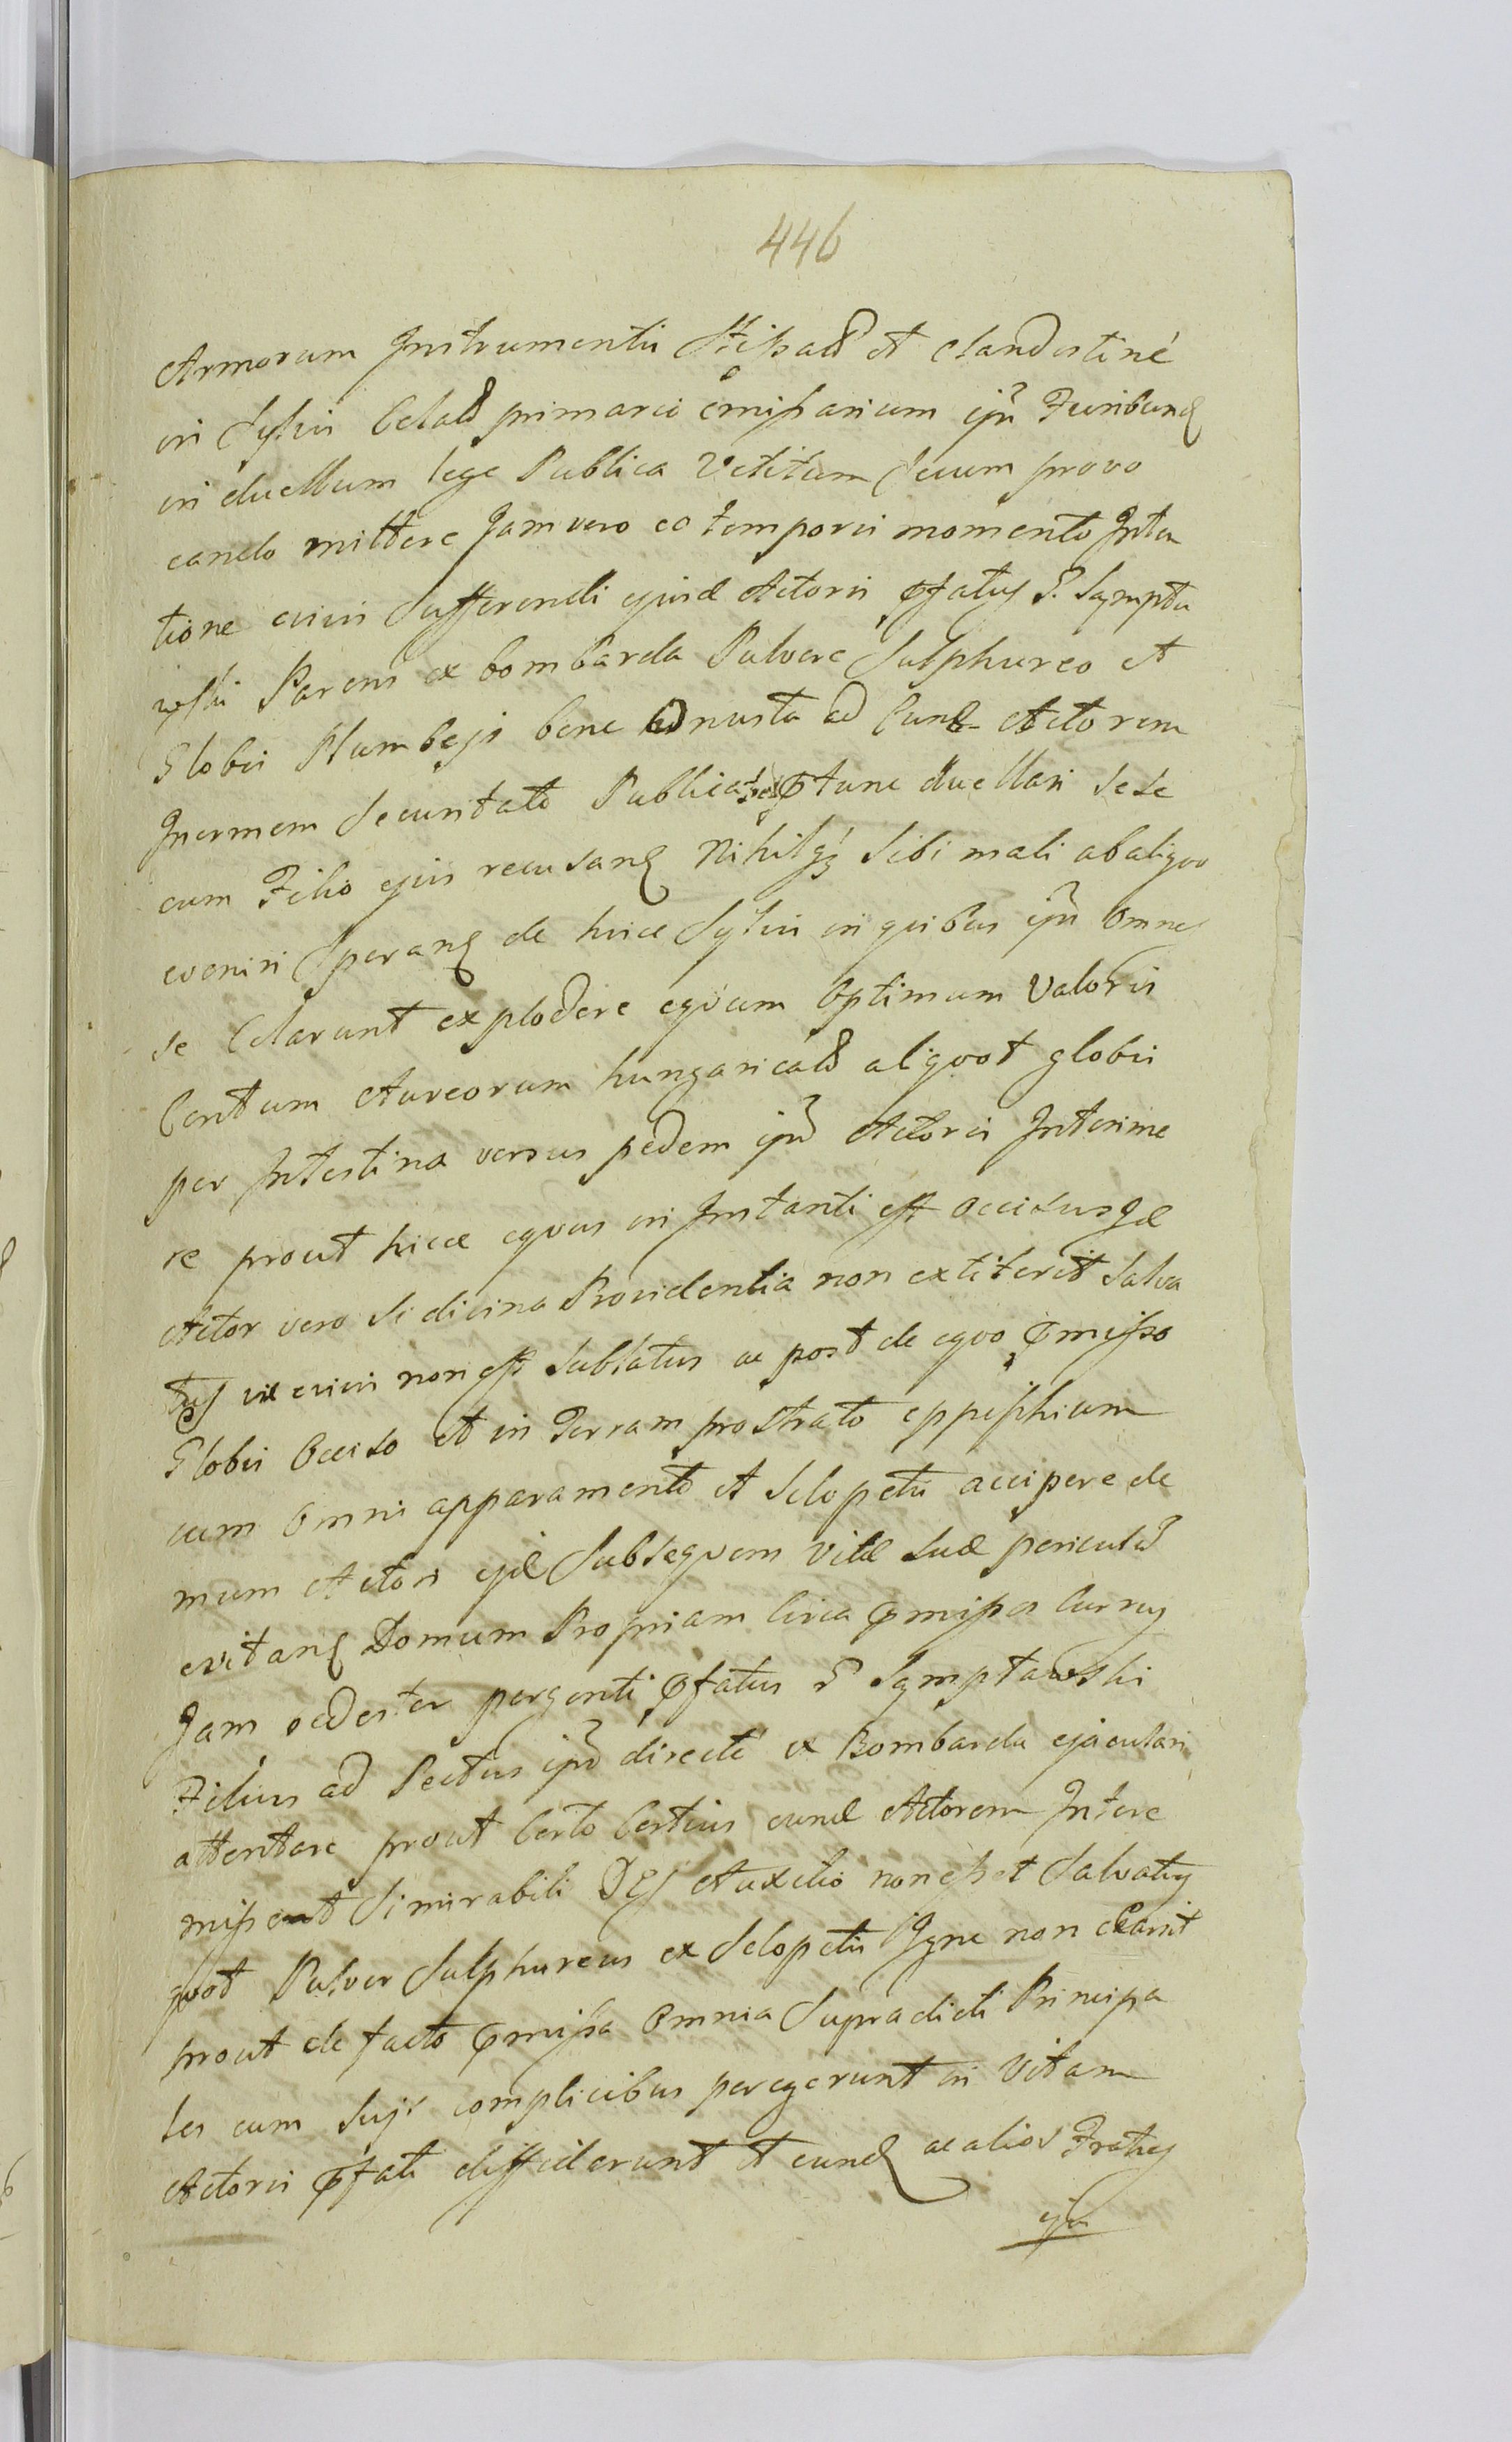 446
Armorum Instrumentis Stipatos et clandestine
in Sylvis Celatos primario emissarium ipsi Furibund
in duellum lege Publica Vetitum secum provo
cando mittere Jam vero eo temporis momento Inten
tione eum Sufferendi ejusd Actoris pfatus S. Sqmpta
wski Parens ex bombarda Pulvere Sulphureo et
Globis Plumbeis bene onusta ad Eund Actorem
Inermem Securitate Publica ptune duellari sese
cum Filio ejus recusans Nihilq sibi mali ab aliquo
eveniri Sperans de hisce Sylvis in quibus ipsi omnes
se Celarunt explodere equum Optimum Valoris
Centum Aureorum hungaricalium aliquot globis
per Intestina versus pedem ipsius Actoris Interime
re prout hicce equus in Instanti est occisus Id
Actor vero si divina Providentia non extiterit salva
tus vix e vivis non est sublatus ac post de equo pmisso
Globis Occiso et in Terram prostrato eppiphium
cum omni apparamento et Sclopetis accipere de
mum Actori ejd Subsequem Vitæ suæ periculum
evitans Domum Propriam Circa pmissos currus
Jam pedester pergenti pfatus S. Sqmptawski
Filius ad Pectus ipsius directe ex Bombarda ejaculari
attentare prout Certo Certius eund Actorem Intere
misset Si mirabili Dei Auxilio non esset Salvatus
quod Pulver Sulphureus ex Sclopetis Igne non
prout de facto pmissa Omnia Supradicti Principa
les cum suis complicibus peregerunt in Vitam
Actoris pfati diffiderunt et eund ac alios Fratres
ejus